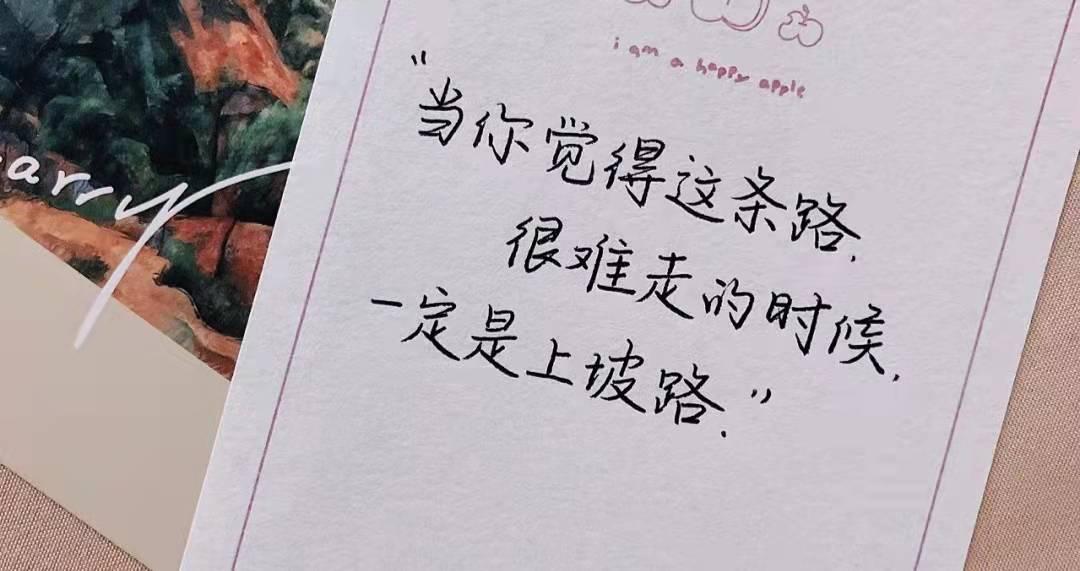 i am a happy apple
"当你觉得这条路.
很难走的时候.
一定是上坡路."
arry